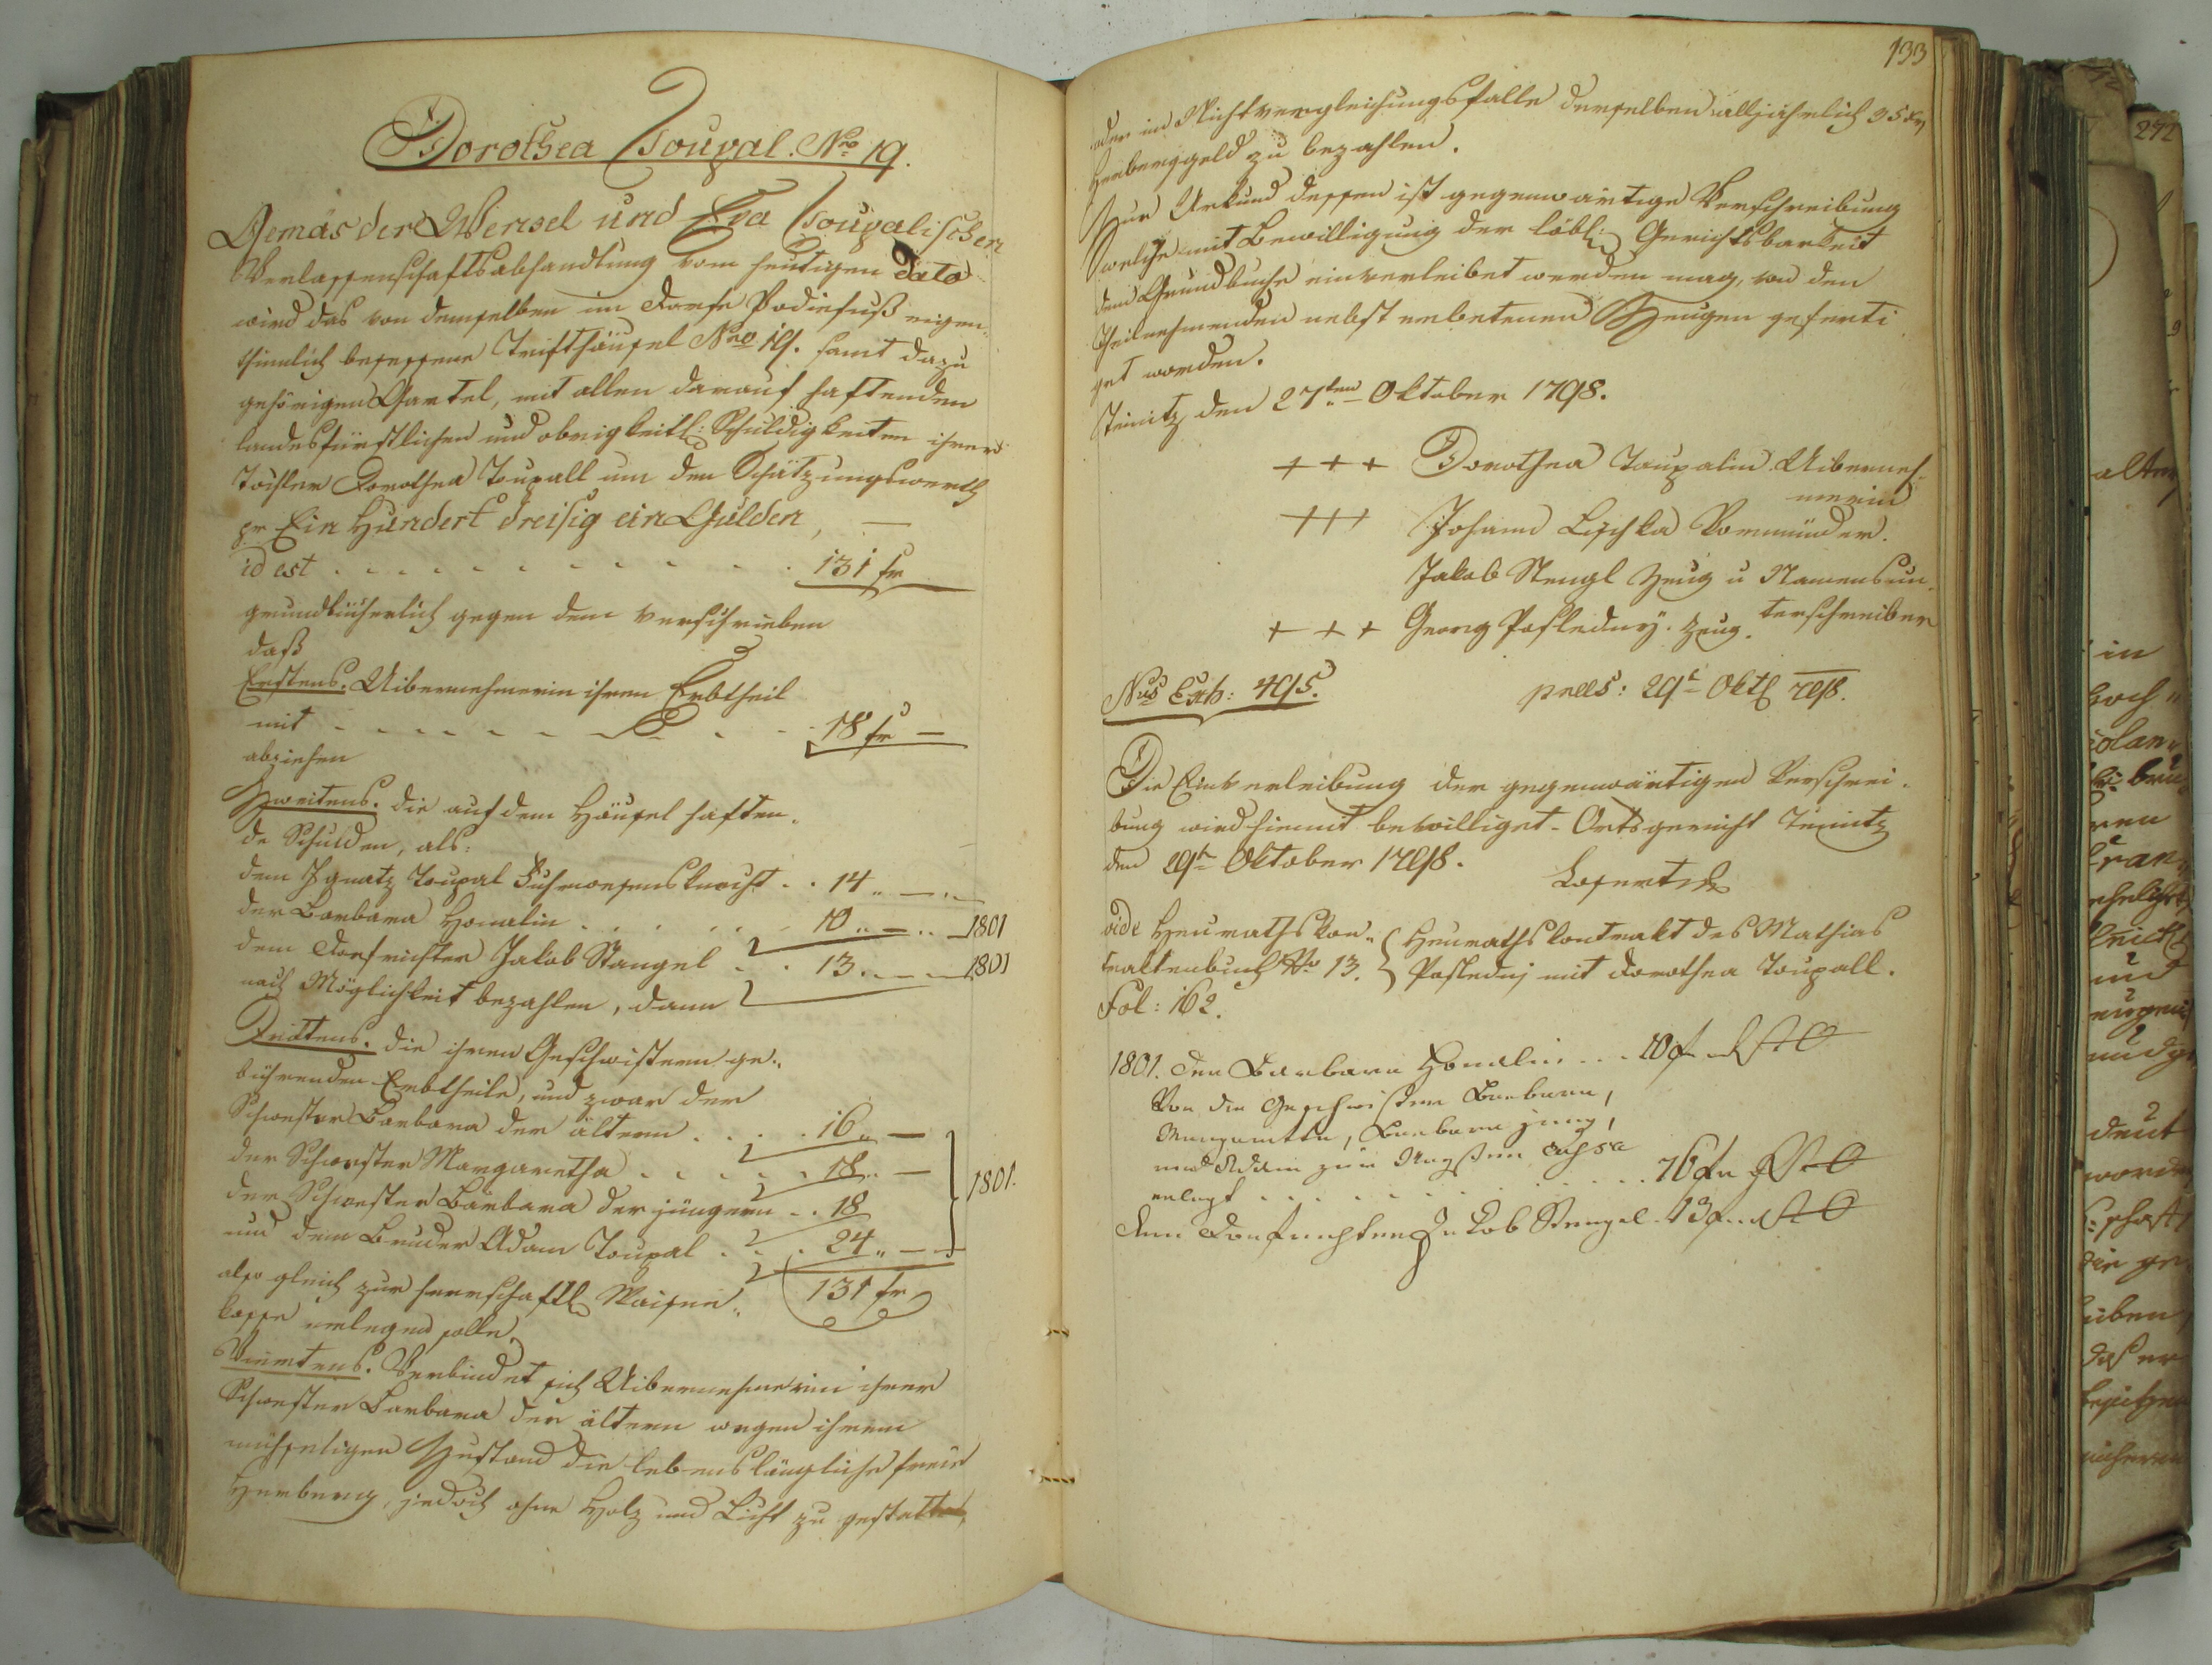 Dorothea Toupal. Nro 19.
Gemäs der Wensel und Eva Toupalischen
Verlassenschaftsabhandlung vom heutigen dato
wird das von demselben im Dorfe Podiefuß eigen-
thümlich besessene Trifthäusel Nro 19. samt dazu
gehörigen Gartel, mit allen darauf haftenden
landesfürstlichen und obrigkeitl: Schuldigkeiten ihrer
Tochter Dorothea Toupall um den Schätzungswerth
pr Ein Hundert dreisig ein Gulden, —
id est . . . . . . . . . . . 131 fr
grundbücherlich gegen dem verschrieben
daß
Erstens. Uibernehmerin ihren Erbtheil
mit . . . . . . . . . 18 fr —
abziehen
Zweitens. die auf dem Häusel haften-
de Schulden, als:
dem Ignatz Toupal Fuhrwesensknecht . . 14 „ — „ —
der Barbara Homalin . . . . . . 10 „ — „ — 1801
dem Dorfrichter Jakob Stangel . . 13 „ — „ — 1801
nach Möglichkeit bezahlen, dann
Drittens. die ihren Geschwistern ge-
bührenden Erbtheile, und zwar der
Schwester Barbara der ältern . . . . 16 „ —
der Schwester Margaretha . . . . . 18 „ —
der Schwester Barbara der jüngern . . 18
1801.
und dem Bruder Adam Toupal . . . 24 „ — „ —
also gleich zur herrschaftl Waisen- 131 fr
kasse erlegen solle.
Viertens. Verbindet sich Uibernehmerin ihrer
Schwester Barbara der ältern wegen ihrem
mühseligen Zustand die lebenslängliche freie
Herberg, jedoch ohne Holz und Licht zu gestatten,
133
oder im Nichtvergleichungsfalle derselben alljährlich 35 xr
Herberggeld zu bezahlen.
Zur Urkund dessen ist gegenwärtige Verschreibung
welche mit Bewilligung der löbl: Gerichtsbarkeit
dem Grundbuche einverleibet werden mag, von den
Theilnehmenden nebst erbetenen Zeugen geferti
get worden.
Steinitz den 27ten Oktober 1798.
+++ Dorothea Toupalin Uiberneh-
merin
+++ Johann Lischka Vormünder.
Jakob Stengl Zeug u Namensun
terschreiber
+++ Georg Posledny. Zeug.
Nus Exh: 495. praes: 29t Oktb 798.
Die Einverleibung der gegenwärtigen Verschrei-
bung wird hiemit bewilliget. Ortsgericht
den 29t Oktober 1798.
vide Heurathskon- { Heurathskontrakt des Mathias
traktenbuch No 13. } Posledny mit Dorothea Toupall.
Fol: 162.
1801. der Barbara Homalin . . . 10 f
Von die Geschwistern Barbara,
Margaretha, Barbara jung,
und Adam zur
erlegt . . . . . . . . . . 76 fr
dem Dorfrichter Jakob Stengel . 13 f